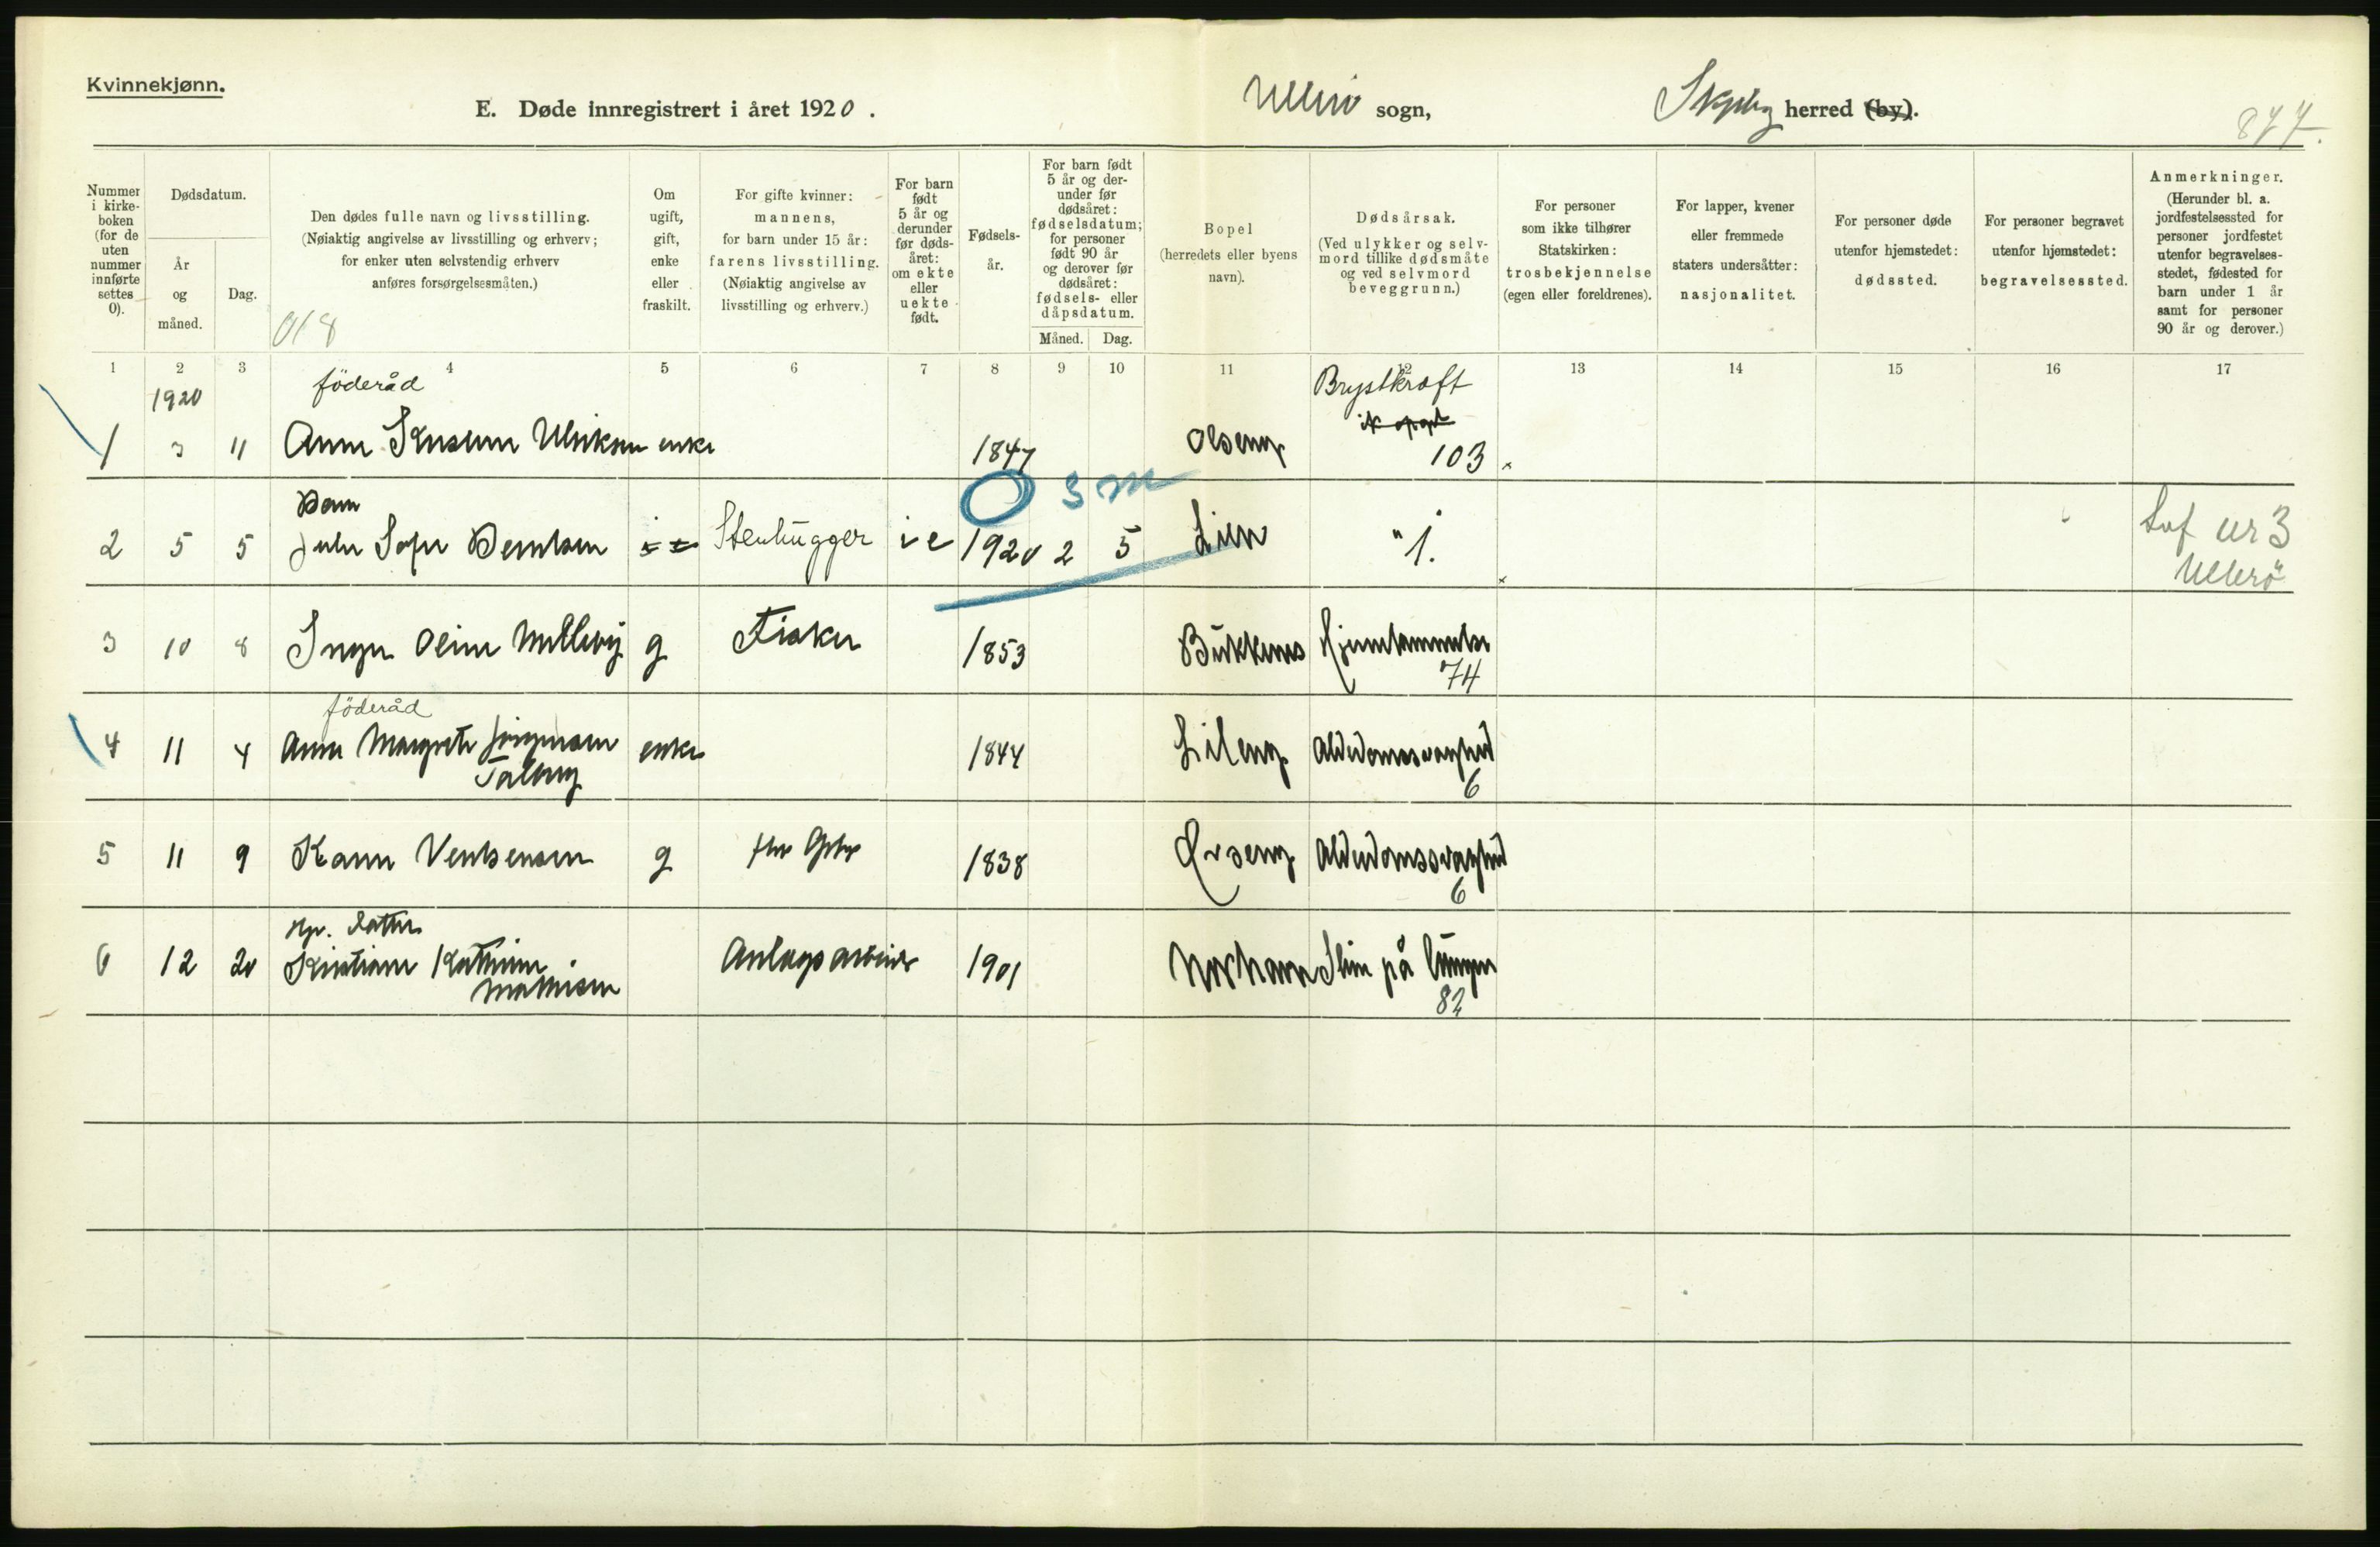 Kvinnekjønn.
E. Døde innregistrert i året 1920. Ullerö sogn, herred (by).
877.
Nummer i kirkeboken (for de uten nummer innførte settes 0).
Dødsdatum.
År og måned.
Dag.
Den dødes fulle navn og livsstilling.
(Nøiaktig angivelse av livsstilling og erhverv;
for enker uten selvstendig erhverv
anføres forsørgelsesmåten.)
018
Om ugift, gift, enke eller fraskilt.
For gifte kvinner: mannens, for barn under 15 år: farens livsstilling. (Nøiaktig angivelse av livsstilling og erhverv.)
For barn født 5 år og derunder før dødsåret: om ekte eller uekte født.
Fødselsår.
For barn født 5 år og derunder før dødsåret: fødselsdatum; for personer født 90 år og derover før dødsåret: fødsels- eller dåpsdatum.
Måned. Dag.
Bopel (herredets eller byens navn).
Dødsårsak. (Ved ulykker og selvmord tillike dødsmåte og ved selvmord beveggrunn.)
For personer som ikke tilhører Statskirken: trosbekjennelse (egen eller foreldrenes).
For lapper, kvener eller fremmede staters undersåtter: nasjonalitet.
For personer døde utenfor hjemstedet: dødssted.
For personer begravet utenfor hjemstedet: begravelsessted.
Anmerkninger. (Herunder bl. a. jordfestelsessted for personer jordfestet utenfor begravelsesstedet, fødested for barn under 1 år samt for personer 90 år og derover.)
1 2 3 4 5 6 7 8 9 10 11 12 13 14 15 16 17
1920 föderåd Brystkræft
1 3 11 Anne Ulriksen enke 1847 Olseng 103
0 3 m
Barn
2 5 5 Sofie Berntsen Stenhugger i e 1920 2 5 Lien " 1.
nr 3
Ullerö
3 10 8 Inger Oline g Fisker 1853 Hjernebetennelse
74
föderåd
4 11 4 Anne Margrete Jörgensen enke 1844 Lileng Alderdomssvaghed
6
5 11 9 Karen Ventsensen g 1838 Alderdomssvaghed
6
datter
6 12 20 Kristiane Kathrine Anlægsarbeider 1901 Slim på lungen
Mathisen
82